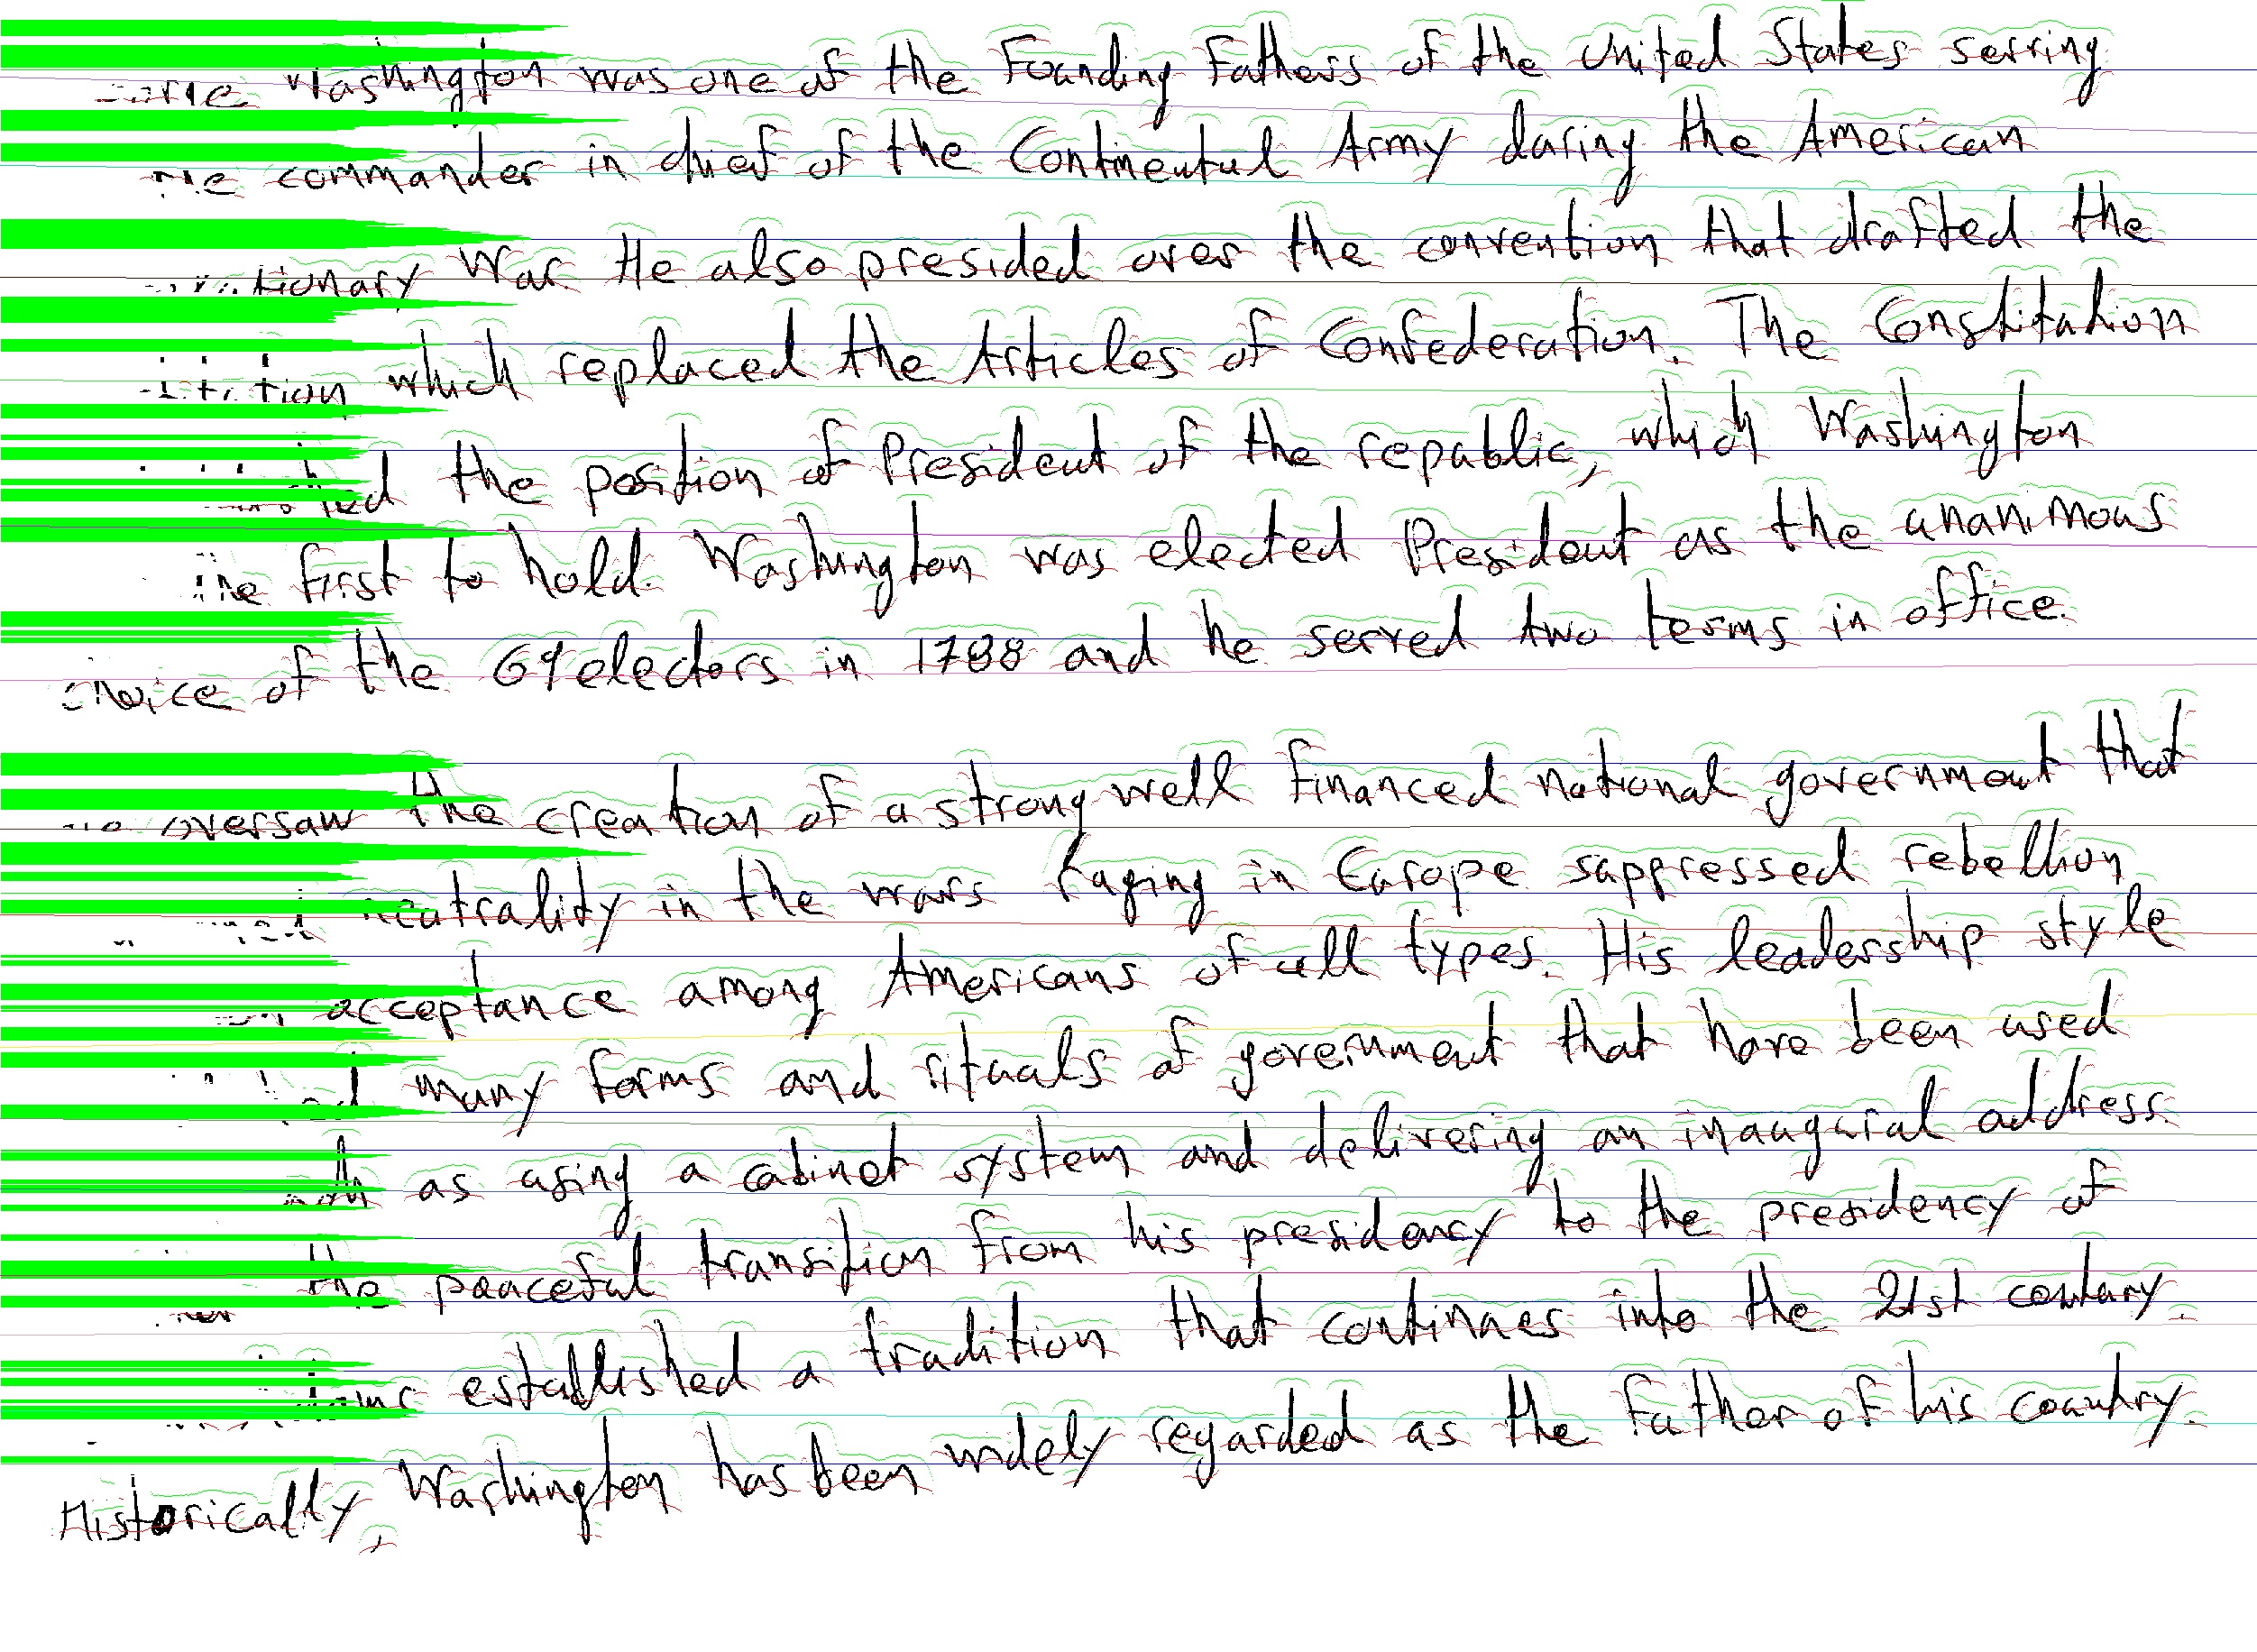 Washington was one of the Founding Fathers of the United States serving
commander in chief of the Continental Army during the American
War. He also presided over the convention that drafted the
which replaced the Articles of Confederation. The Constitution
the position of President of the republic, which Washington
the first to hold. Washington was elected President as the unanimous
choice of the 69 electors in 1788 and he served two terms in office.
oversaw the creation of a strong well financed national government that
neutrality in the wars raging in Europe suppressed rebellion
acceptance among Americans of all types. His leadership style
many forms and rituals of government that have been used
as using a cabinet system and delivering an inaugural address.
the peaceful transition from his presidency to the presidency of
established a tradition that continues into the 21st century.
Historically, Washington has been widely regarded as the father of his country.